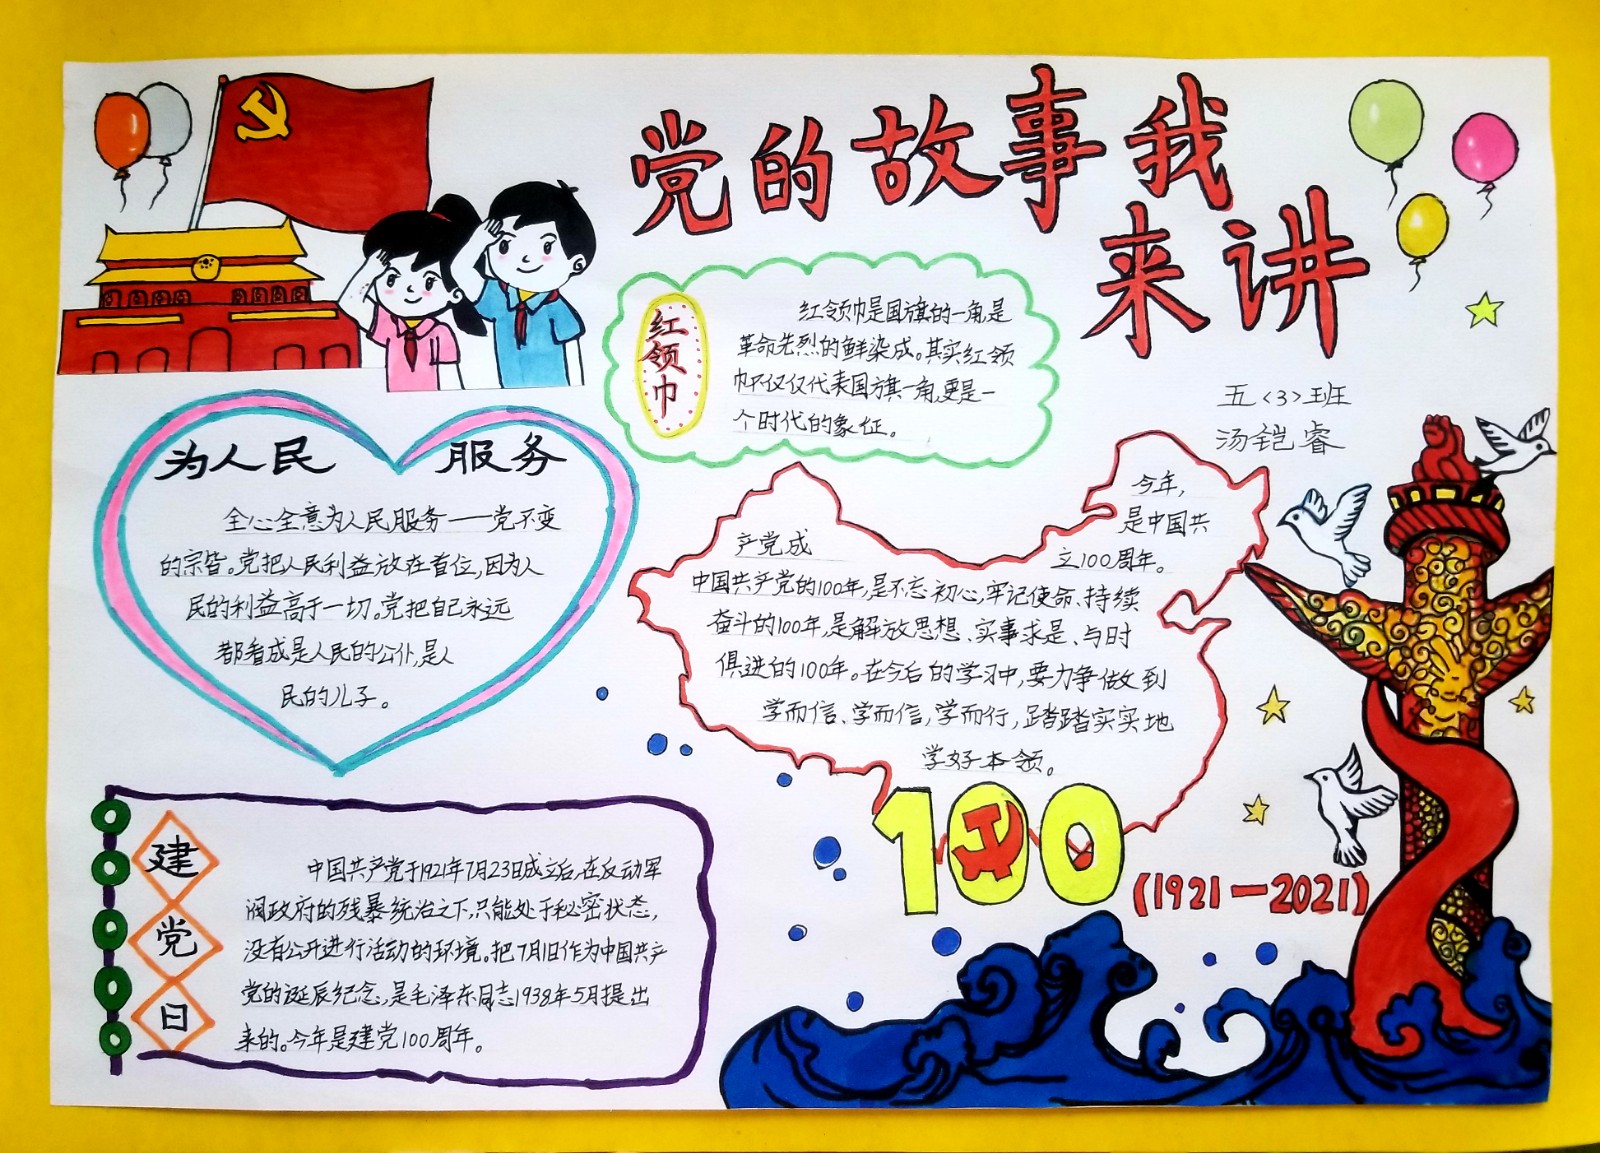 党的故事我
来讲
红领巾
红领巾是国旗的一角是
革命先烈的鲜染成。其实红领
巾不仅仅代表国旗一角,更是一
个时代的象征。
五<3>班
汤铠睿
为人民 服务
全心全意为人民服务——党不变
的宗旨。党把人民利益放在首位,因为人
民的利益高于一切。党把自己永远
都看成是人民的公仆,是人
民的儿子。
今年,
是中国共
产党成
立100周年。
中国共产党的100年,是不忘初心,牢记使命、持续
奋斗的100年,是解放思想、实事求是、与时
俱进的100年。在今后的学习中,要力争做到
学而信、学而信,学而行,踏踏实实地
学好本领。
100
(1921—2021)
建党日
中国共产党于1921年7月23日成立后,在反动军
阀政府的残暴统治之下,只能处于秘密状态,
没有公开进行活动的环境。把7月1日作为中国共产
党的诞辰纪念,是毛泽东同志1938年5月提出
来的。今年是建党100周年。